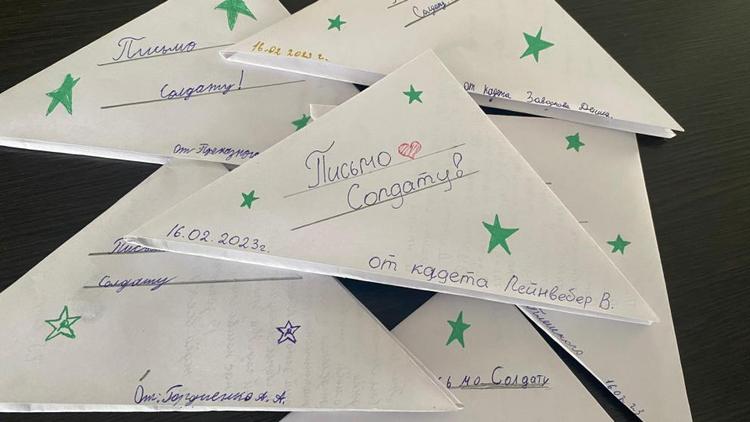 Письмо
Солдату!
От
16.02.2023г.
Солдату.
от кадета Завалкова Дениса
Письмо
Солдату!
16.02.2023г.
от кадета Лейнвебер В.
Письмо
Солдату
От: Гордиенко А. А.
Солдату
16.02.23